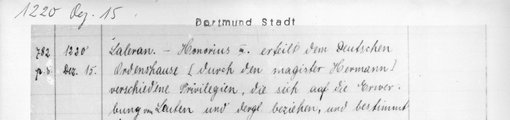 1220 Dez. 15.
Dortmund Stadt
782 1220 Lateran. – Honorius III. erteilt dem Deutschen
Dez. 15. Ordenshause [durch den magister Hermann]
verschiedene Privilegien, die sich auf die Erwer-
bung von Leuten und dergl. beziehen, und bestimmt